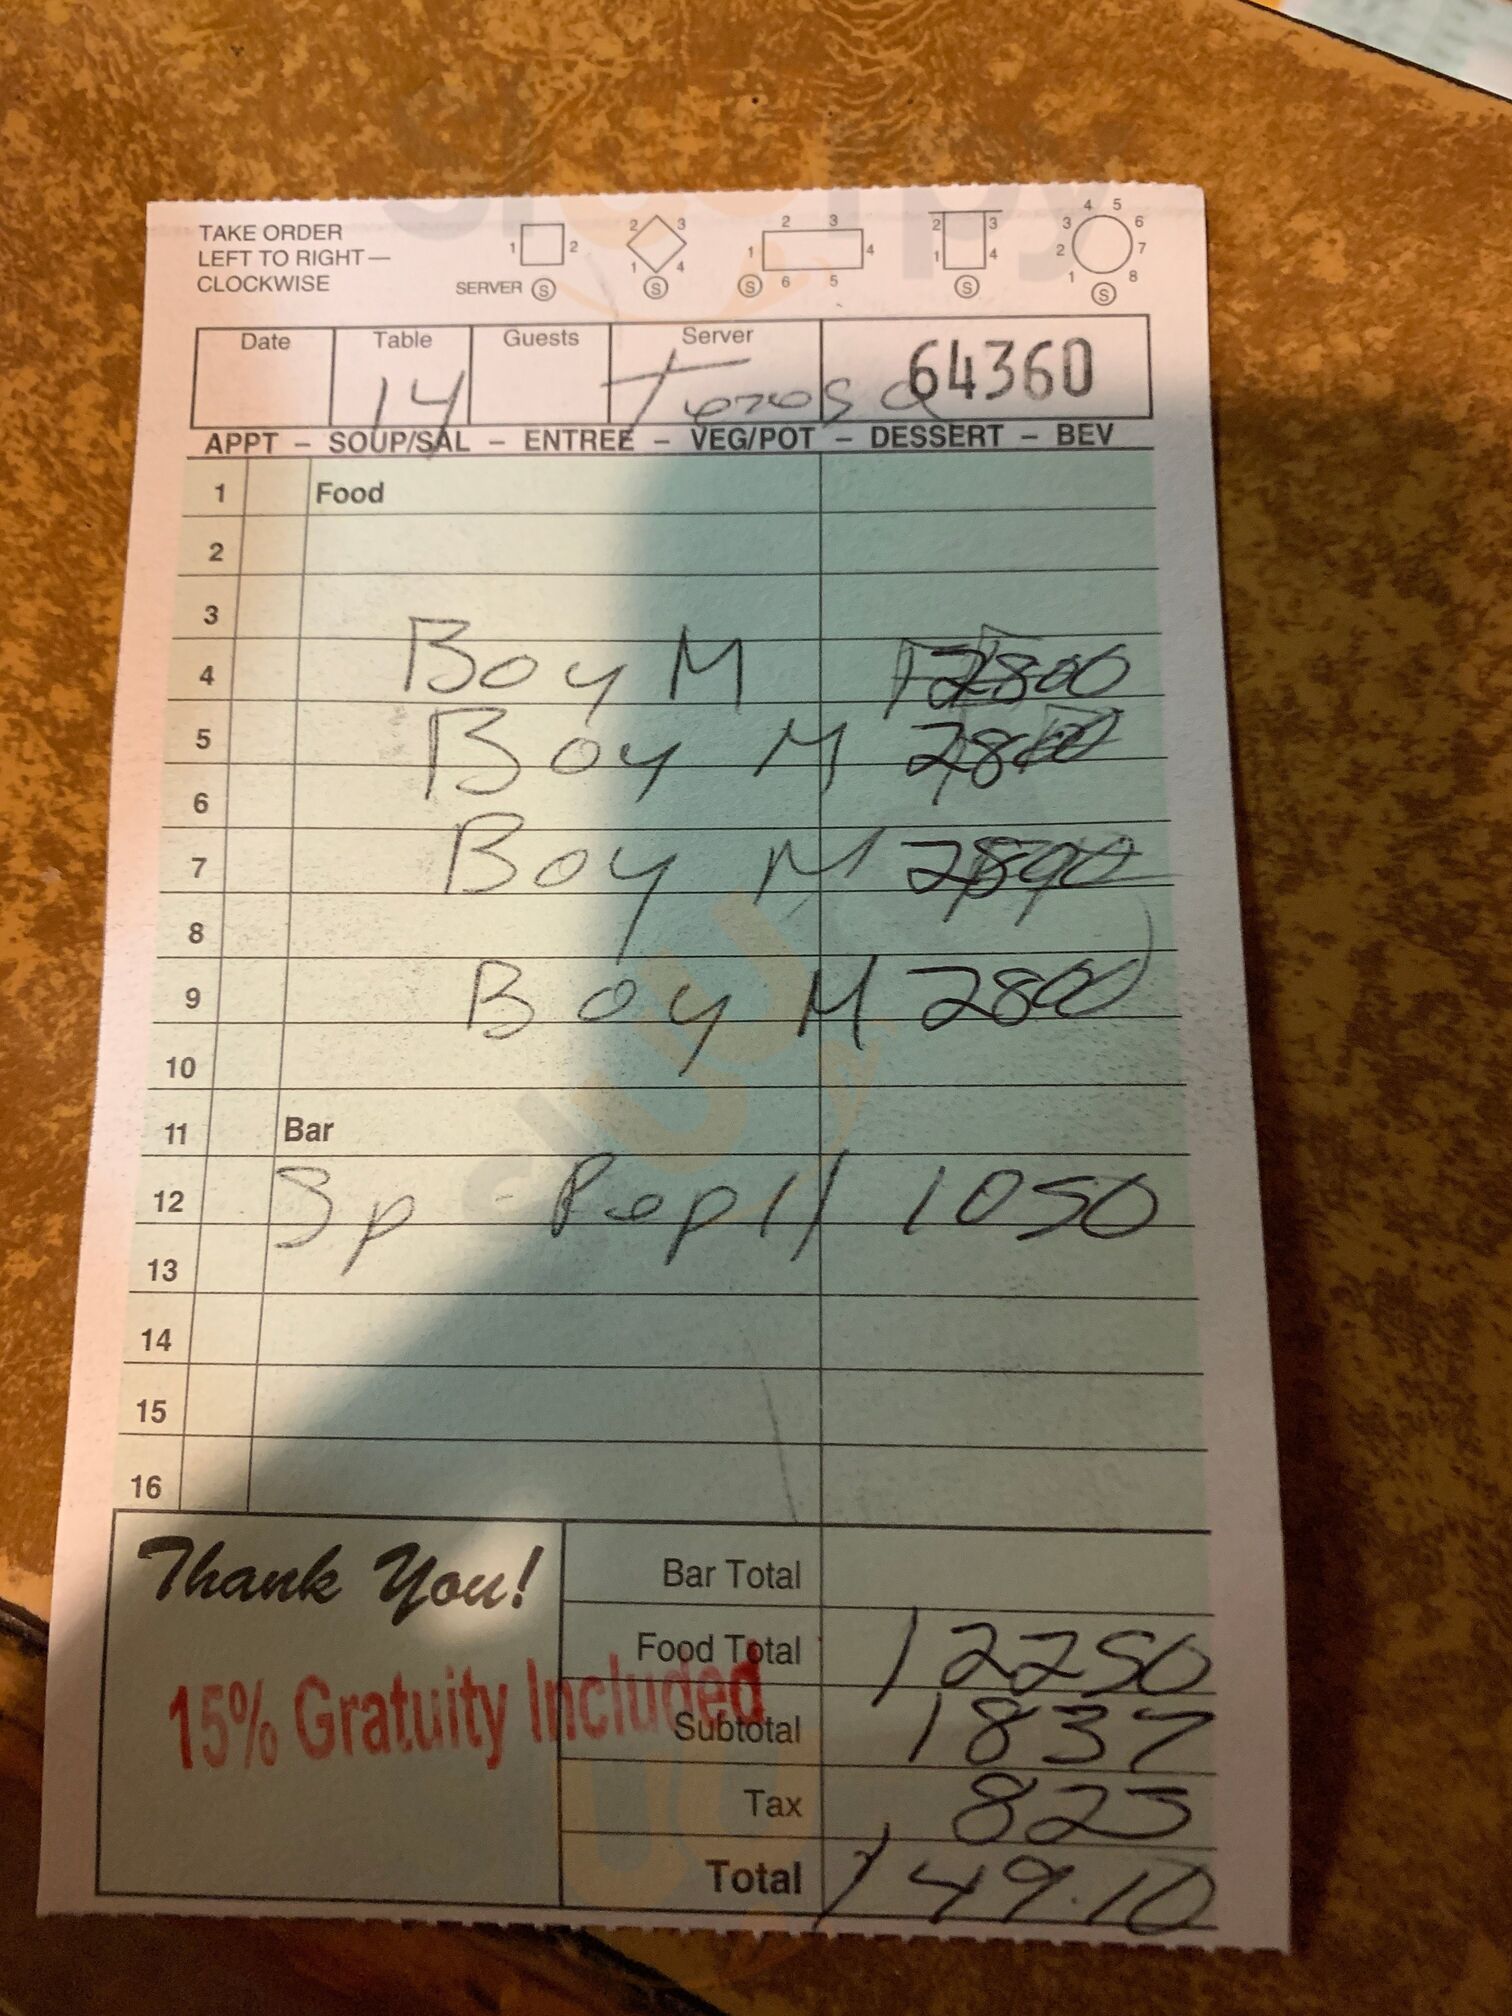 TAKE ORDER
LEFT TO RIGHT—
CLOCKWISE
SERVER S S S S S
1 2
2 3 1 4
2 3 1 4 6 5
2 3 1 4
4 5 3 6 2 7 1 8
Date Table Guests Server 64360
14 Teresa
APPT – SOUP/SAL – ENTREE – VEG/POT – DESSERT – BEV
1 Food
2
3
4 Boy M 2800
5 Boy M 2800
6
7 Boy M 2800
8
9 Boy M 2800
10
11 Bar
12 Sp - Pep 11 1050
13
14
15
16
Thank You!
15% Gratuity Included
Bar Total
Food Total 12250
Subtotal 1837
Tax 823
Total 149.10